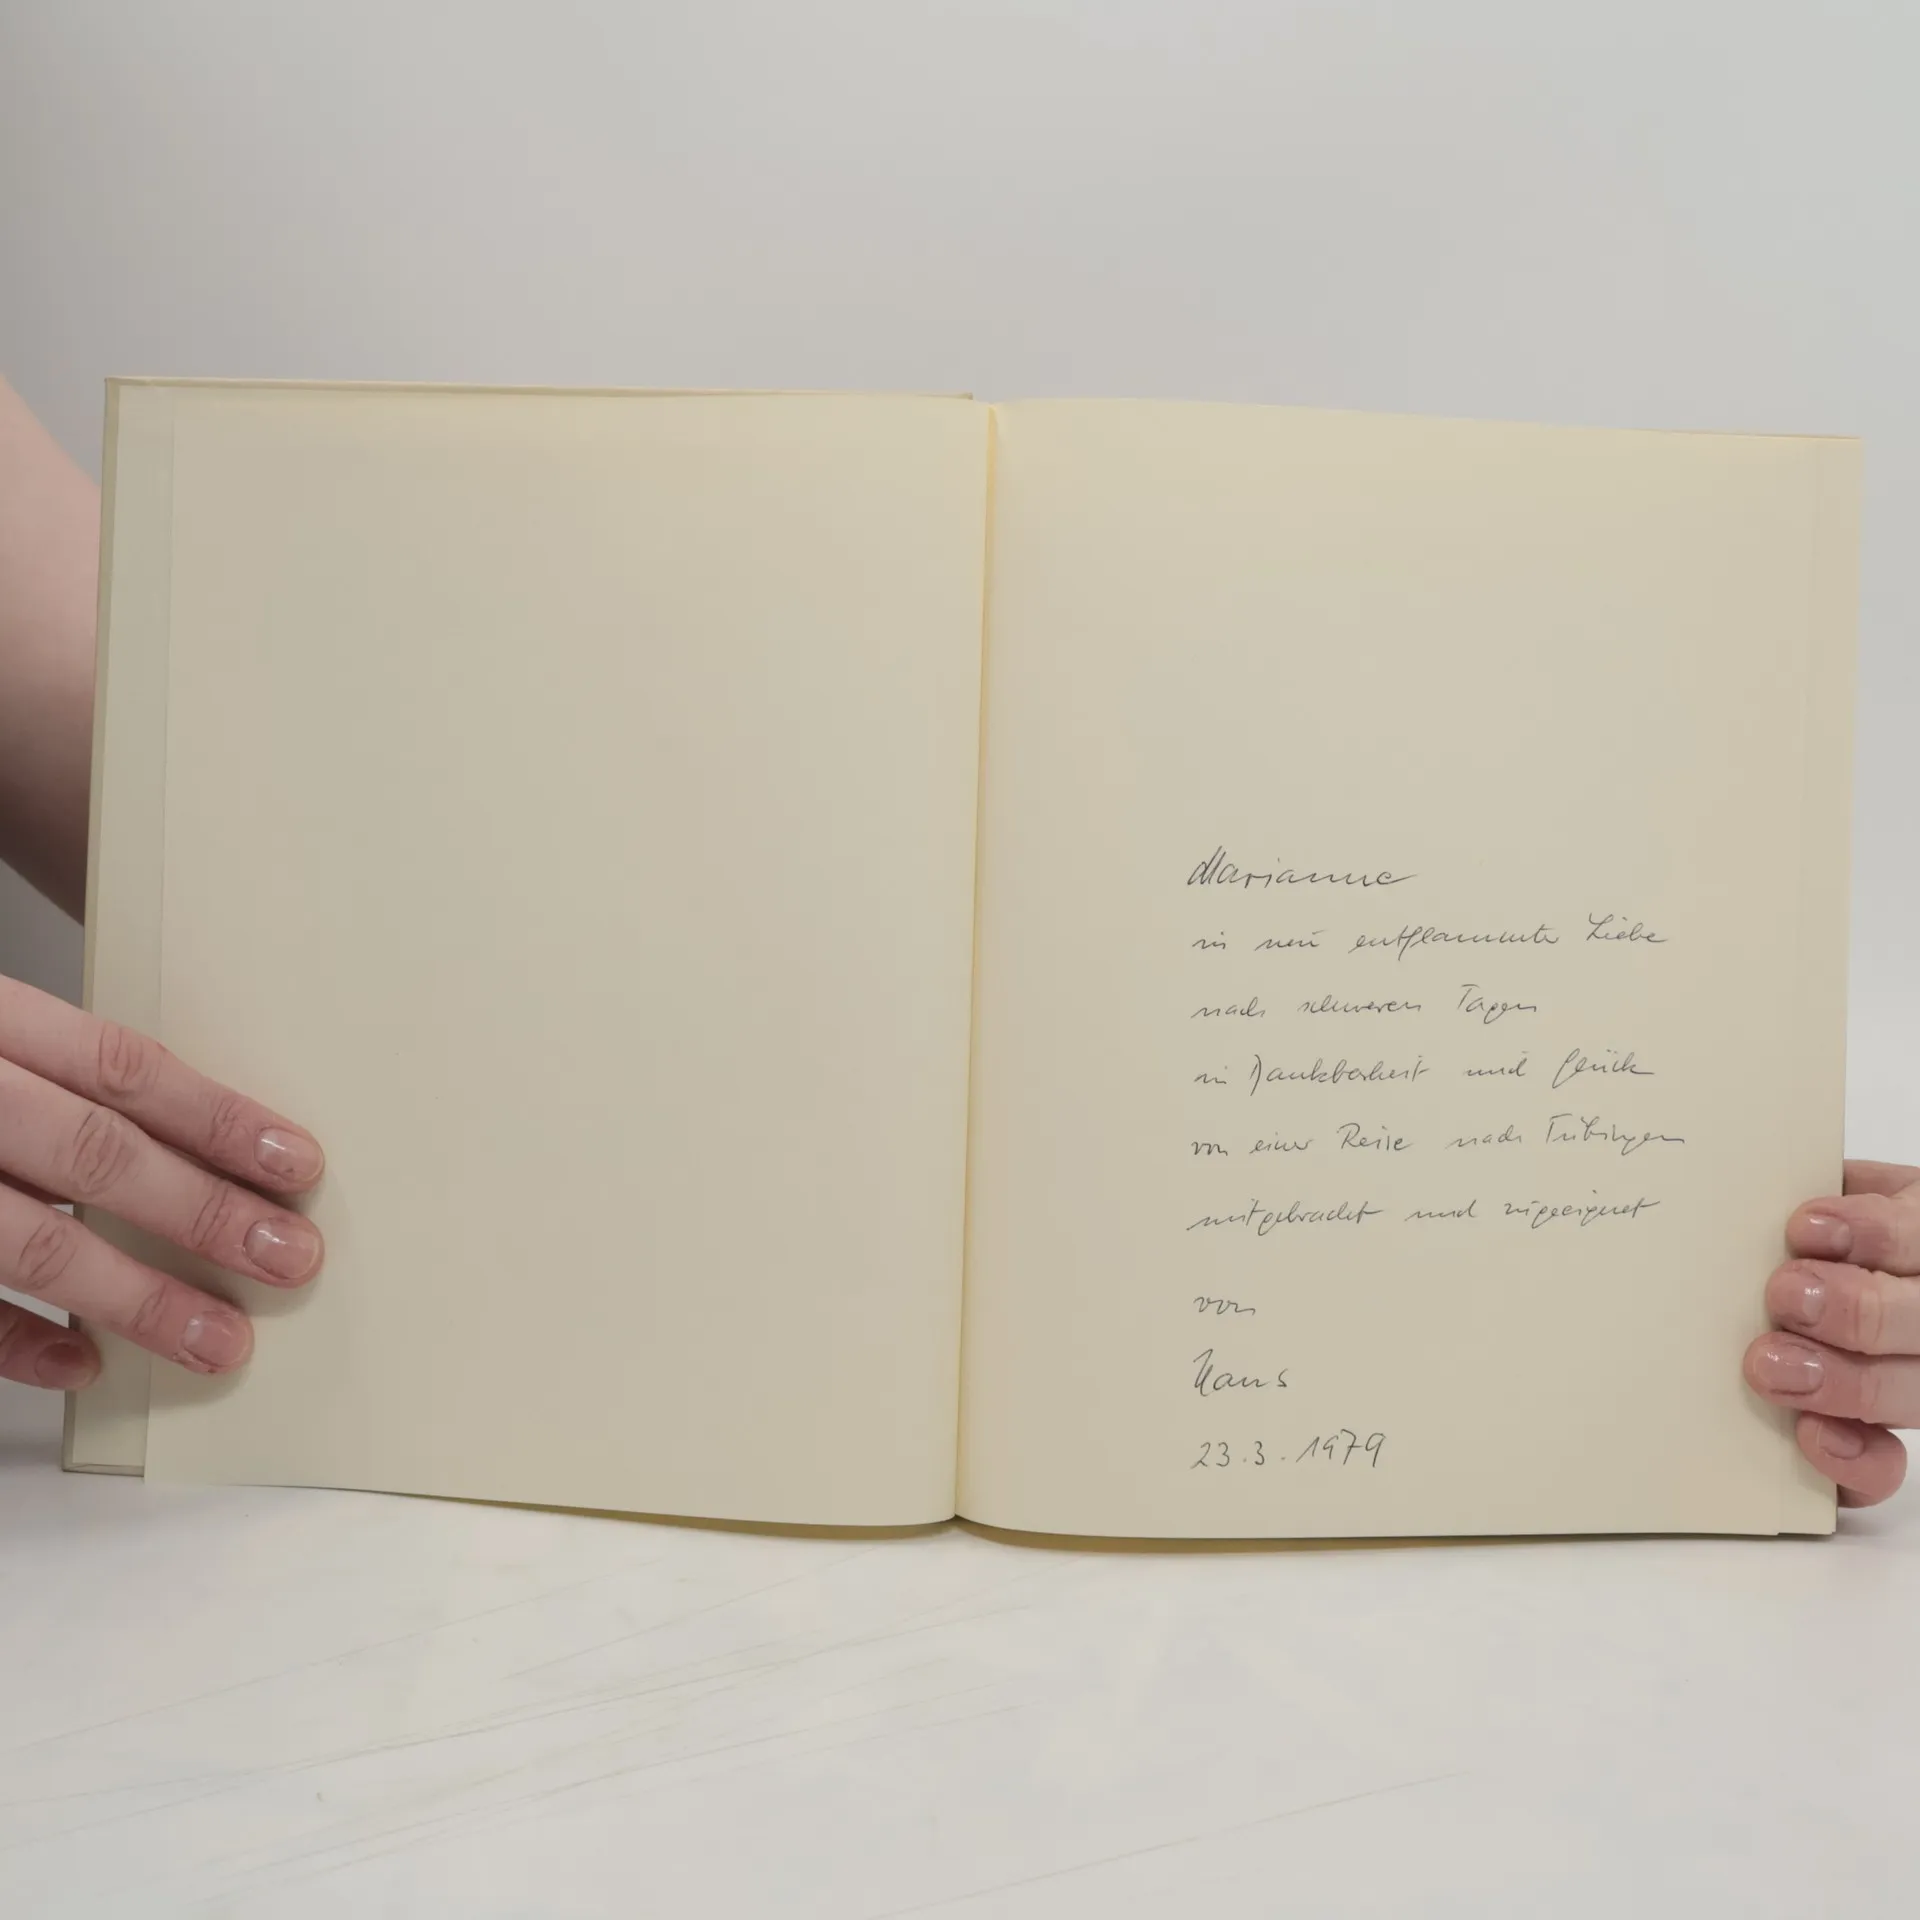 Marianne
in neu entflammter Liebe
nach schweren Tagen
in Dankbarkeit und Glück
von einer Reise nach Tübingen
mitgebracht und zugeeignet
von
Hans
23.3.1979